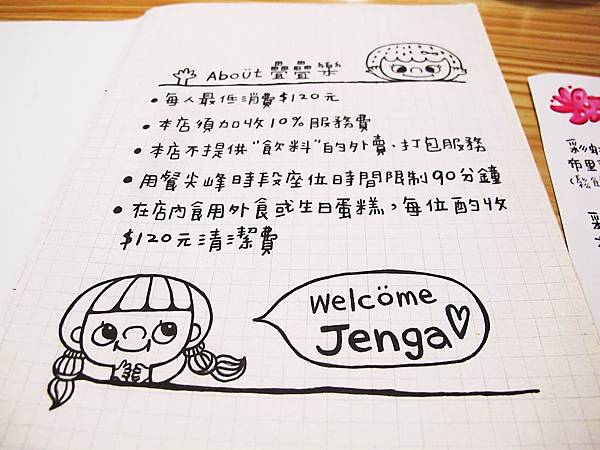 Aboüt 疊疊樂
• 每人最低消費$120元
• 本店須加收10%服務費
• 本店不提供"飲料"的外賣、打包服務
• 用餐尖峰時段座位時間限制90分鐘
• 在店內食用外食或生日蛋糕，每位酌收
$120元清潔費
Welcöme
Jenga♡
彩虹
布里